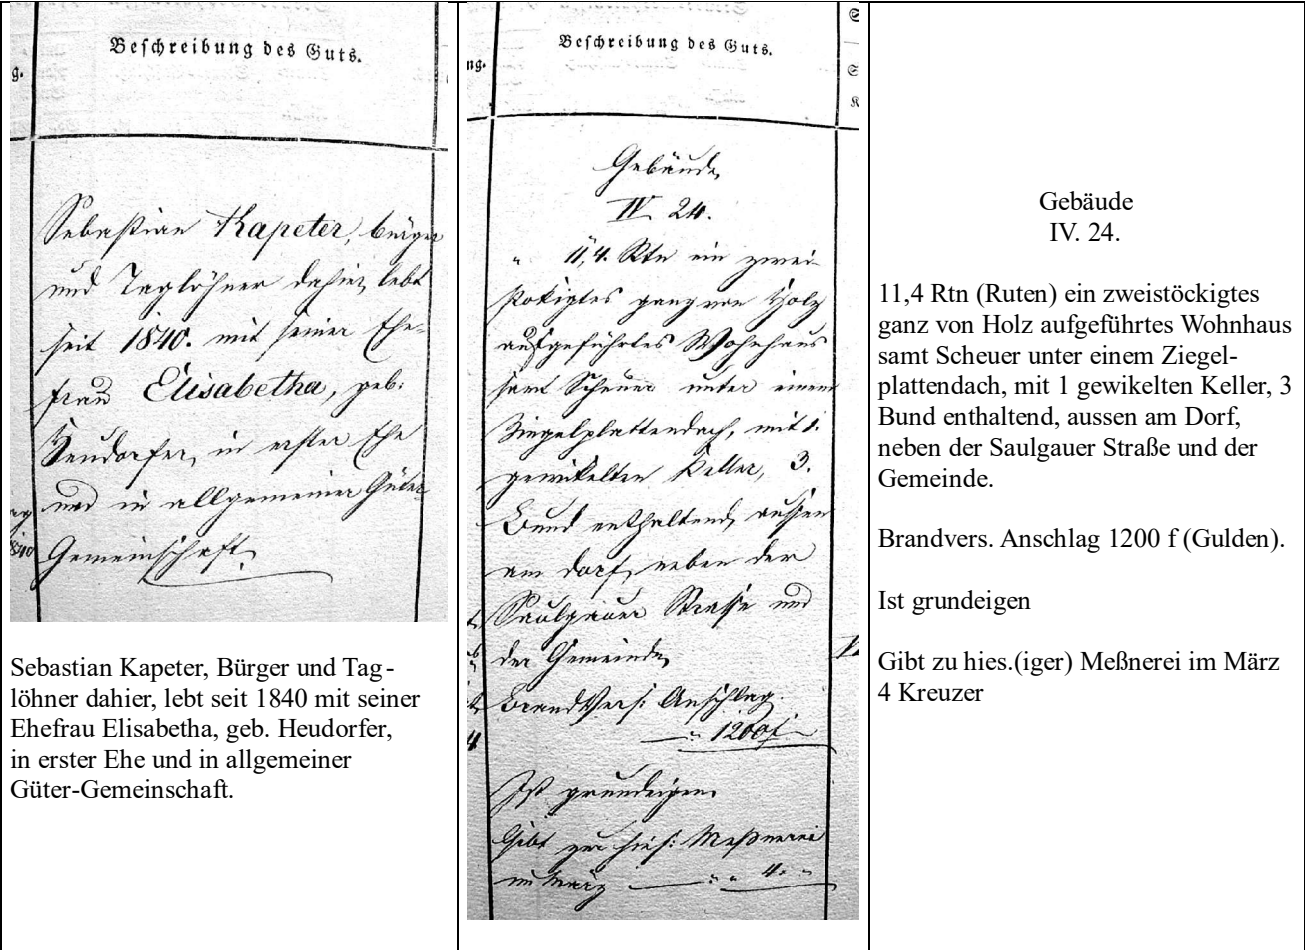 g.
Beschreibung des Guts.
Sebastian Kapeter, bürger
und Taglöhner dahier, lebt
seit 1840. mit seiner Ehe-
frau Elisabetha, geb:
Heudorfer, in erster Ehe
und in allgemeiner Güter-
Gemeinschaft.
Sebastian Kapeter, Bürger und Tag-
löhner dahier, lebt seit 1840 mit seiner
Ehefrau Elisabetha, geb. Heudorfer,
in erster Ehe und in allgemeiner
Güter-Gemeinschaft.
ng.
Beschreibung des Guts.
Gebäude
IV. 24.
" 11,4. Rtn ein zwei-
stokigtes ganz von Holz
aufgeführtes Wohnhaus
samt Scheuer unter einem
Ziegelplattendach, mit 1.
gewikelten Keller, 3.
Bund enthaltend, aussen
am Dorf, neben der
Saulgauer Strasse und
der Gemeinde,
BrandVers: Anschlag
1200 f
Ist grundeigen.
Gibt zur hies: Meßnerei
im März 4.
Gebäude
IV. 24.
11,4 Rtn (Ruten) ein zweistöckigtes
ganz von Holz aufgeführtes Wohnhaus
samt Scheuer unter einem Ziegel-
plattendach, mit 1 gewikelten Keller, 3
Bund enthaltend, aussen am Dorf,
neben der Saulgauer Straße und der
Gemeinde.
Brandvers. Anschlag 1200 f (Gulden).
Ist grundeigen
Gibt zu hies.(iger) Meßnerei im März
4 Kreuzer